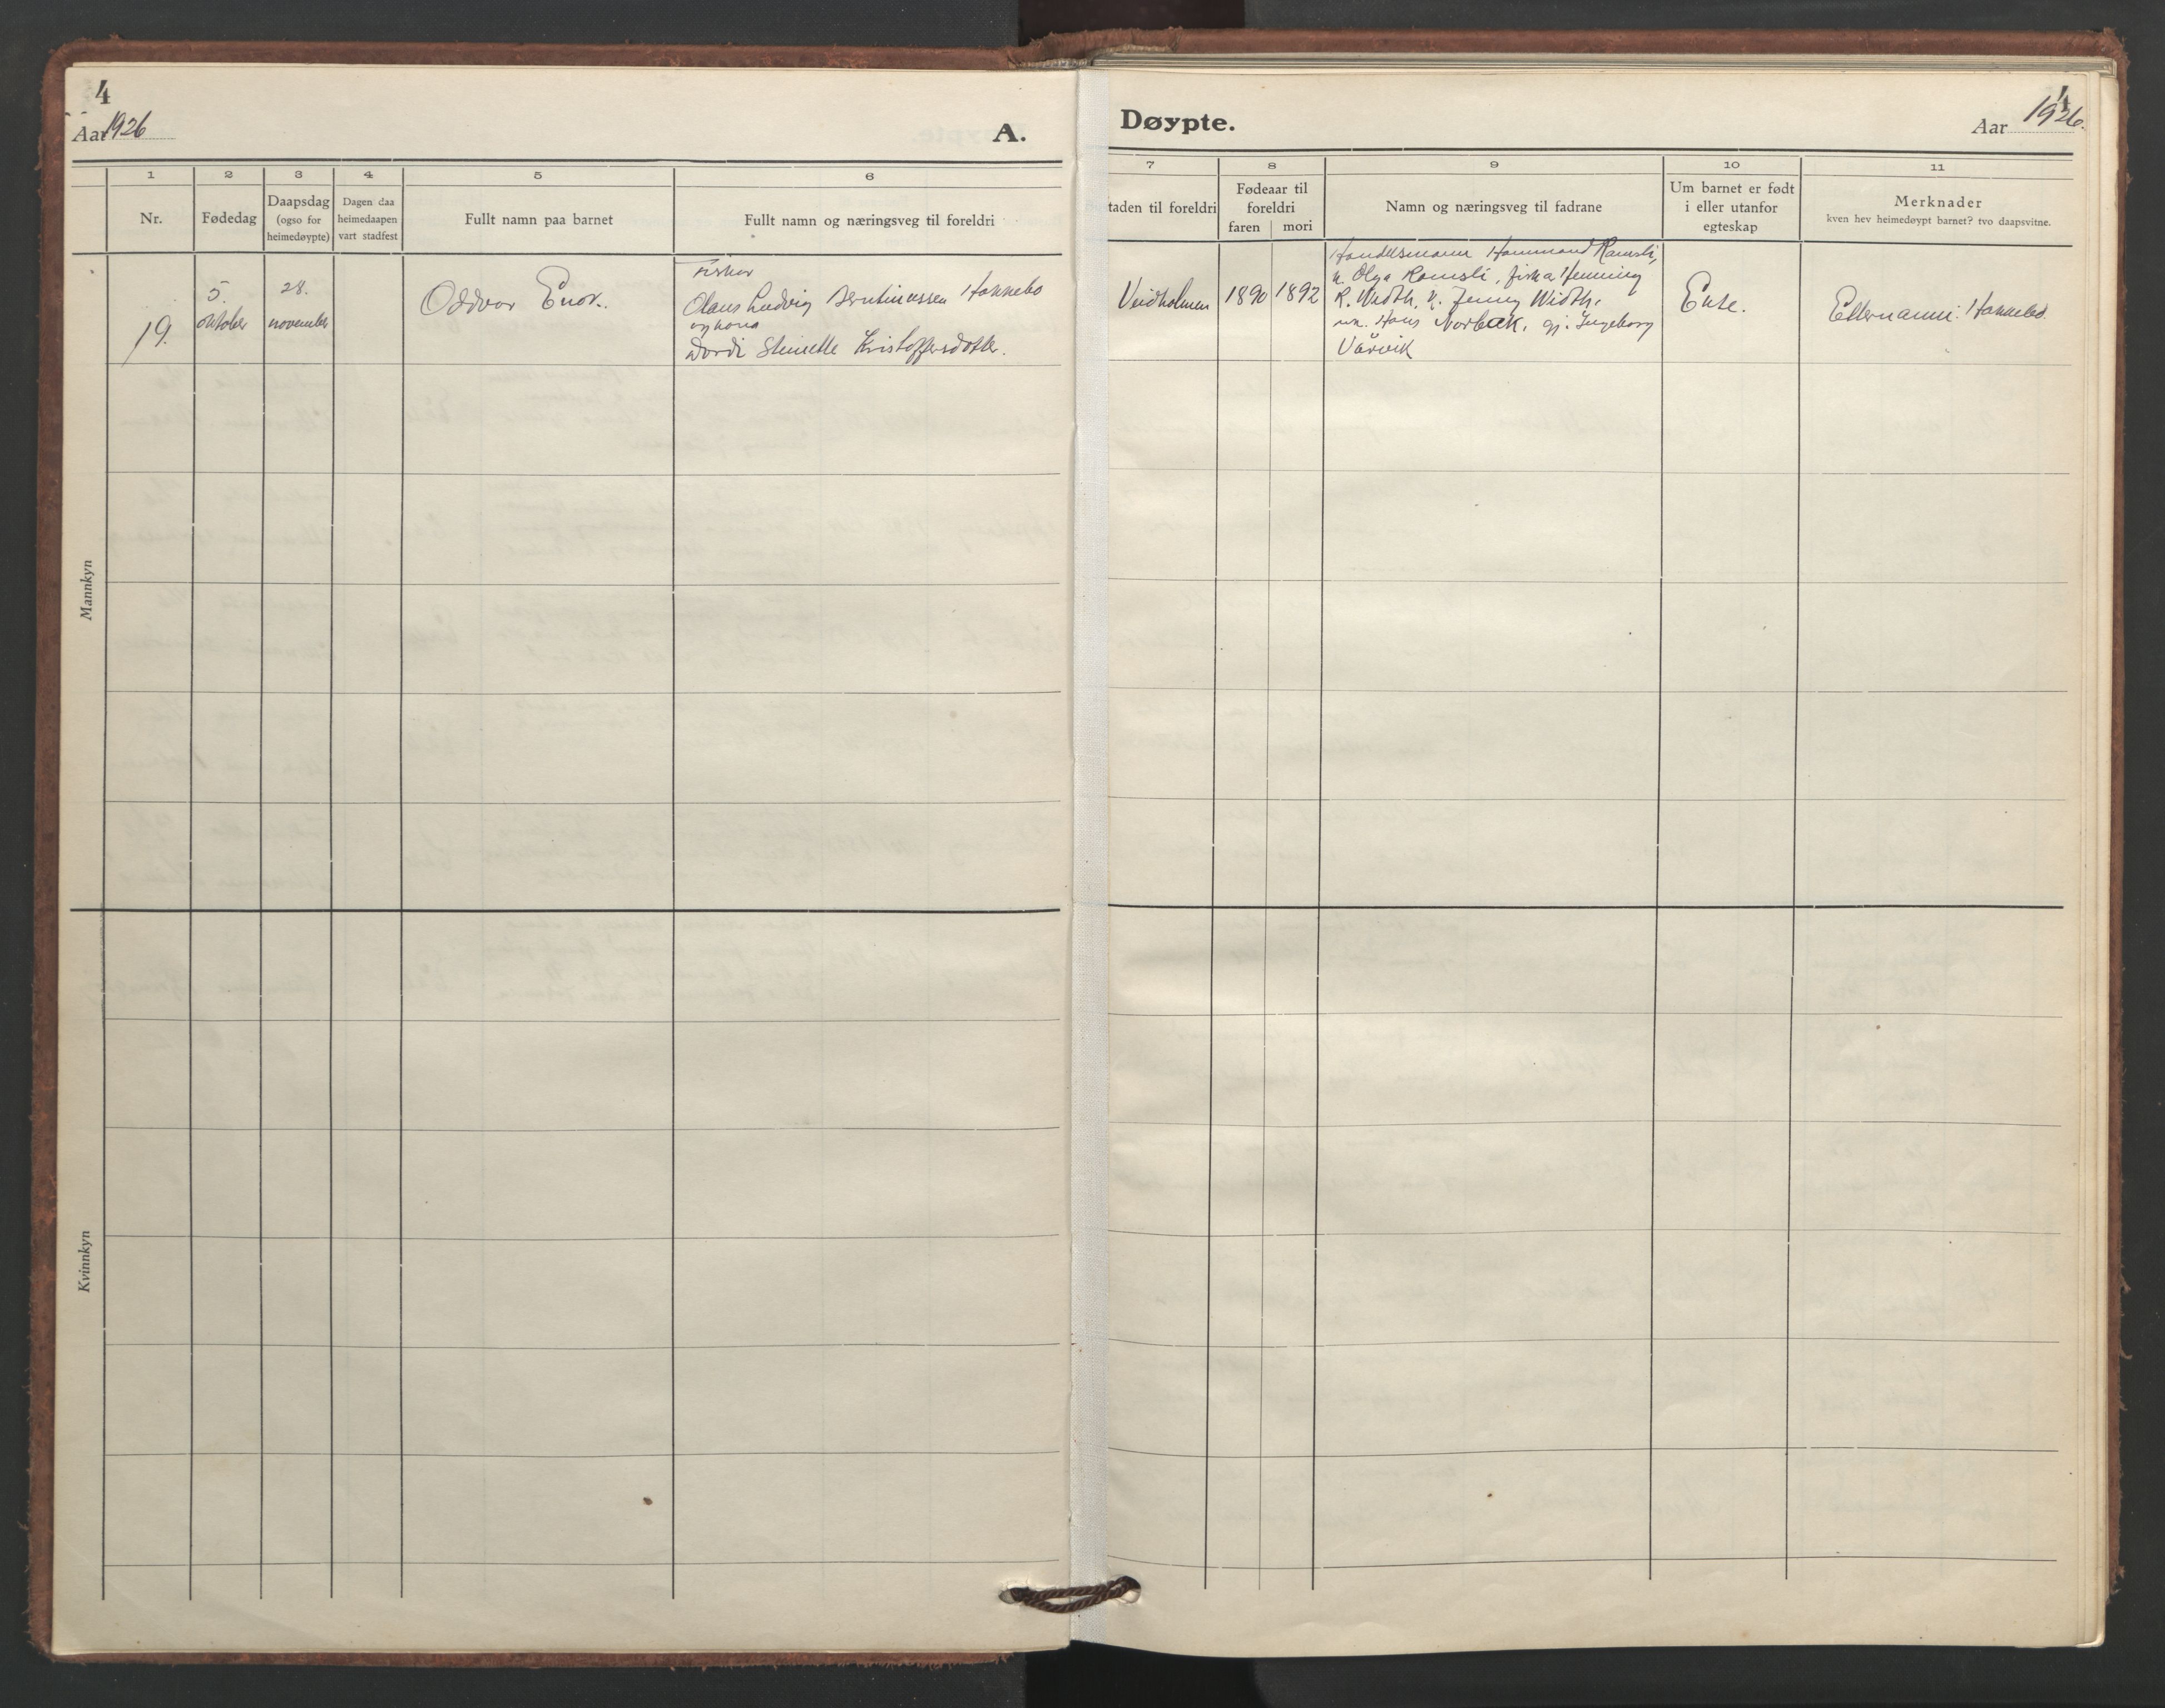 4
Aar 1926
A.
Døypte.
4
Aar 1926.
1
2
3
4
5
6
7
8
9
10
11
Nr.
Fødedag
Daapsdag
(ogso for
heimedøypte)
Dagen daa
heimedaapen
vart stadfest
Fullt namn paa barnet
Fullt namn og næringsveg til foreldri
taden til foreldri
Fødeaar til
foreldri
faren
mori
Namn og næringsveg til fadrane
Um barnet er født
i eller utanfor
egteskap
Merknader
kven hev heimedøypt barnet? tvo daapsvitne.
Mannkyn
19.
5.
oktober
28.
november
Oddvar Enok.
Fiskar
Olaus Ludvig Berntinussen Hakkebo
og kona
Dordi Steinette Kristoffersdotter.
Veidholmen
1890
1892
Handelsmann Hammond Ramsli,
k. Olga Ramsli, fiska. Henning
R. Width, k. Jenny Width,
un. Hans Norbak, gj. Ingeborg
Vårvik
Ekte.
Etternamn: Hakkebo.
Kvinnkyn